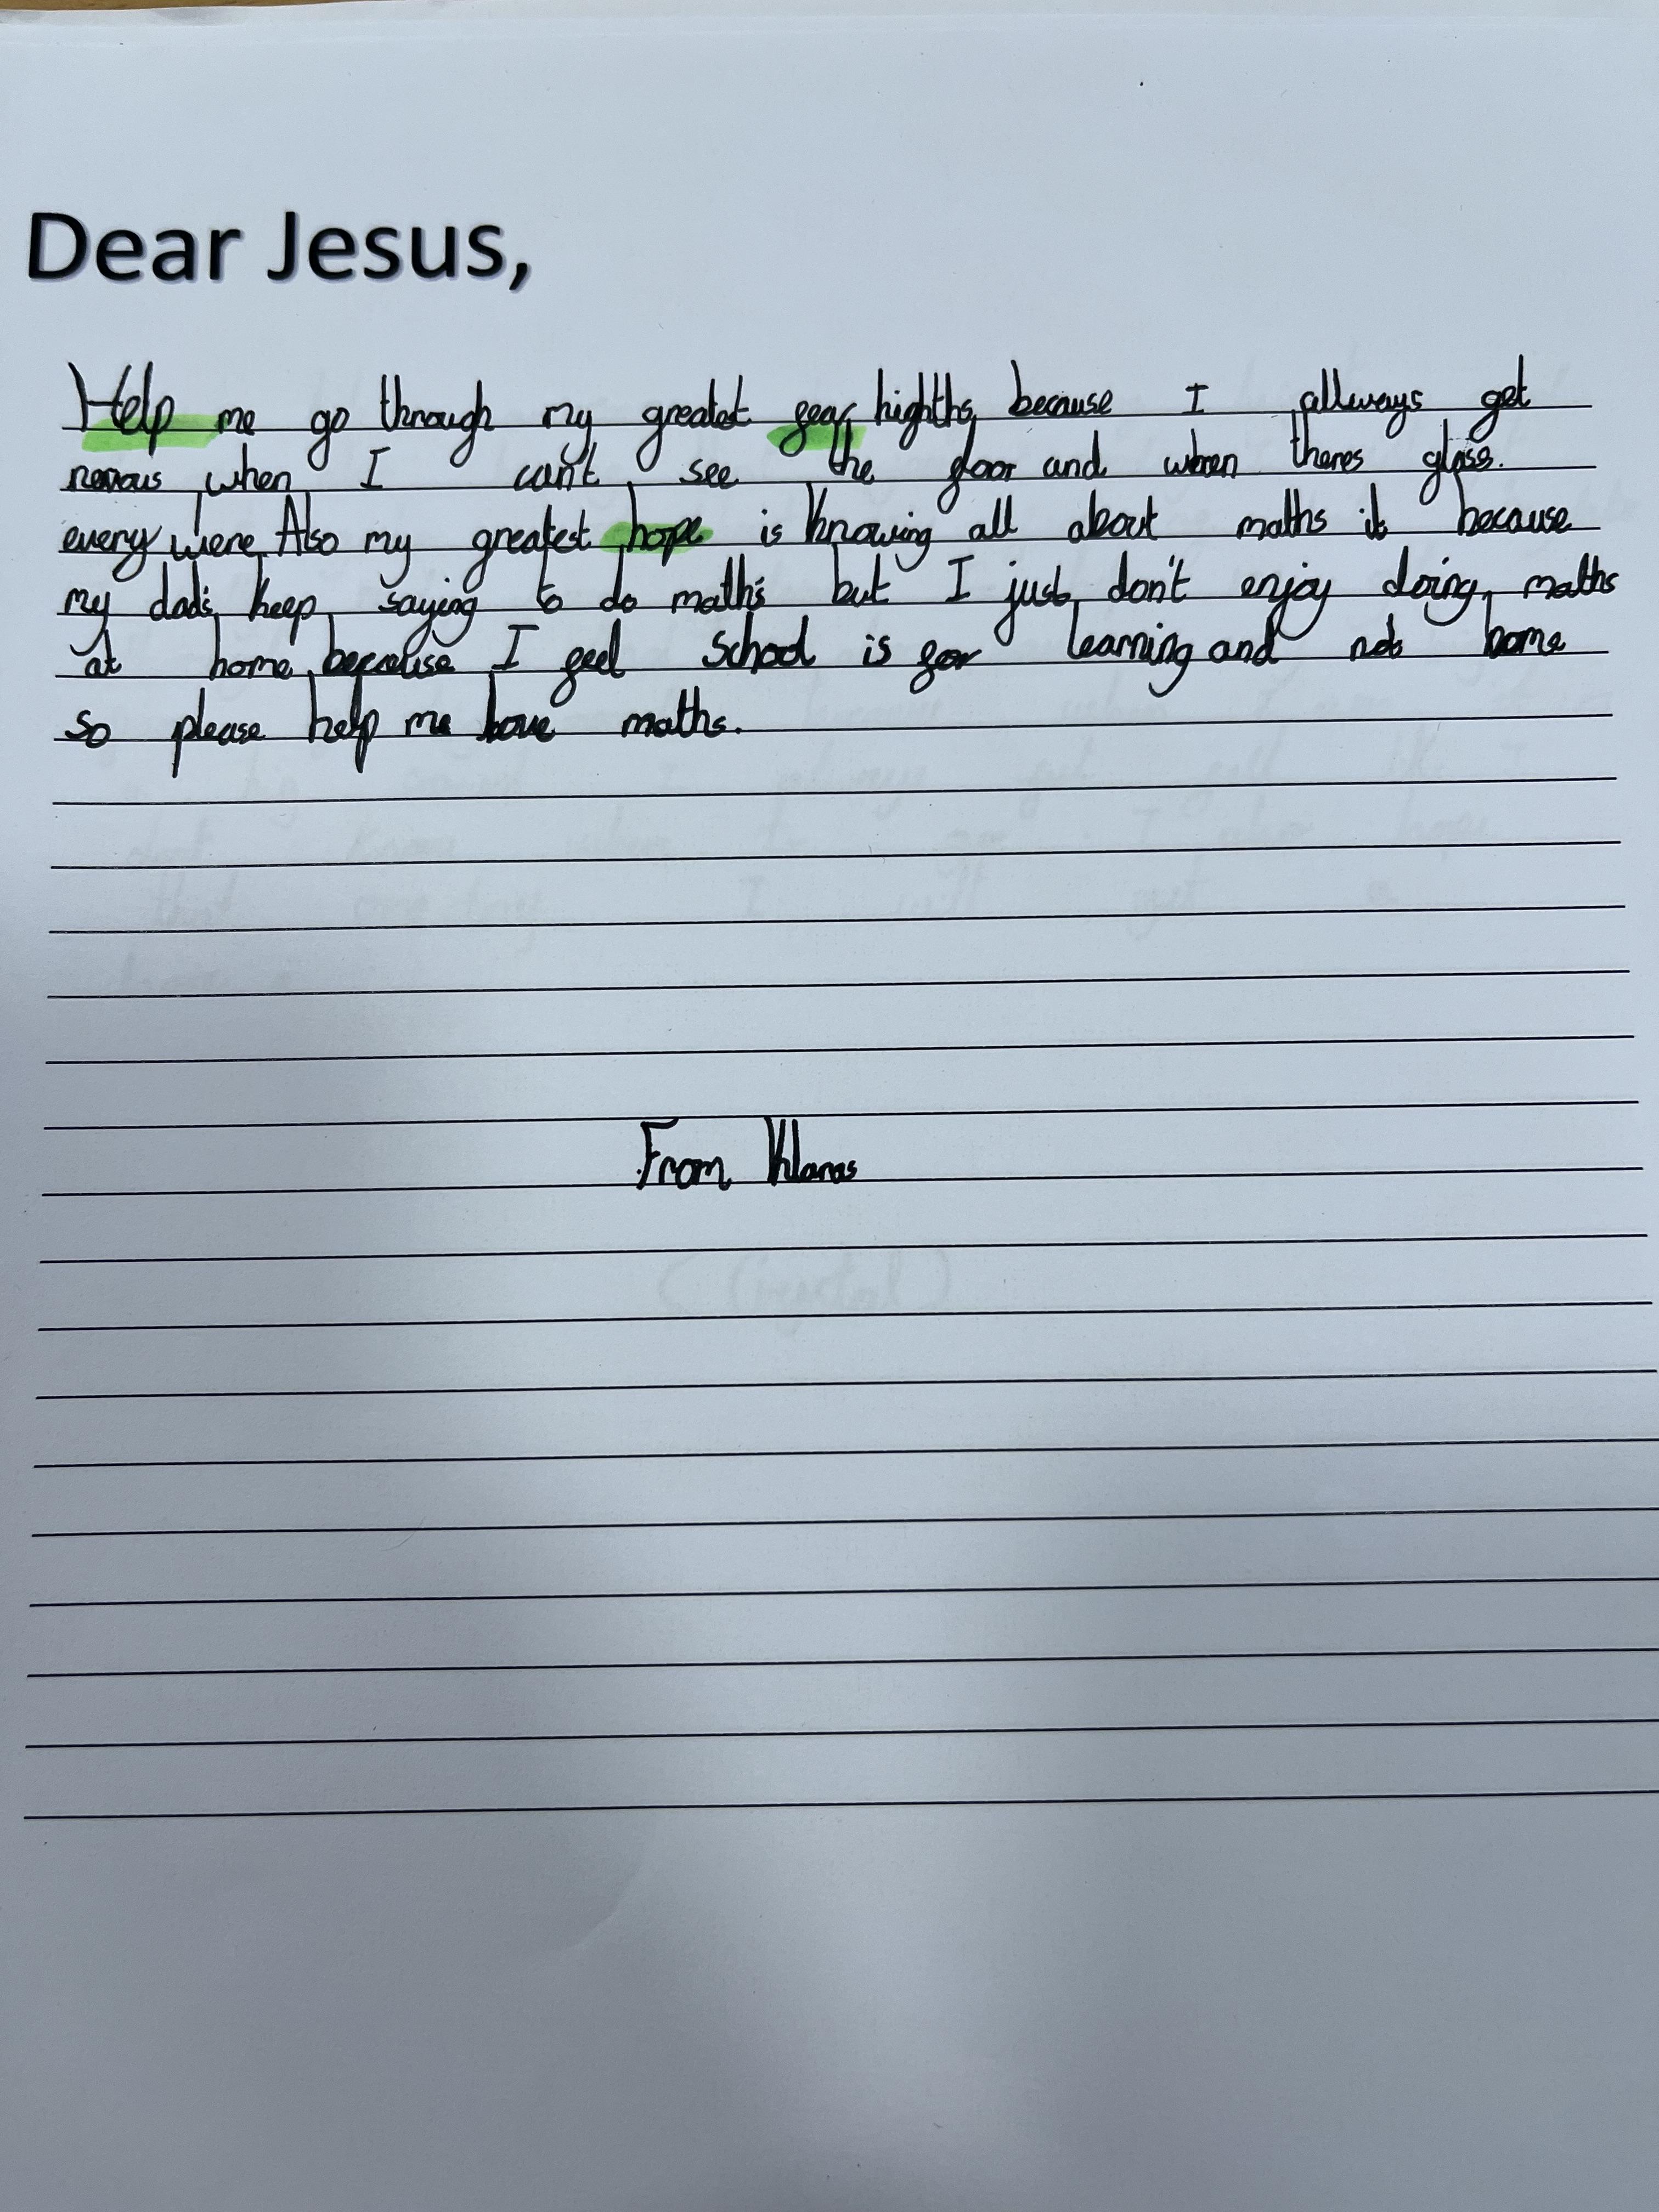 Dear Jesus,
Help me go through my greatest fear, highths, because I allways get
nervous when I can't see the floor and when theres glass.
every were. Also my greatest hope is knowing all about maths it because
my dad's keep saying to do maths but I just don't enjoy doing maths
at home because I feel school is for learning and not home
so please help me love maths.
From